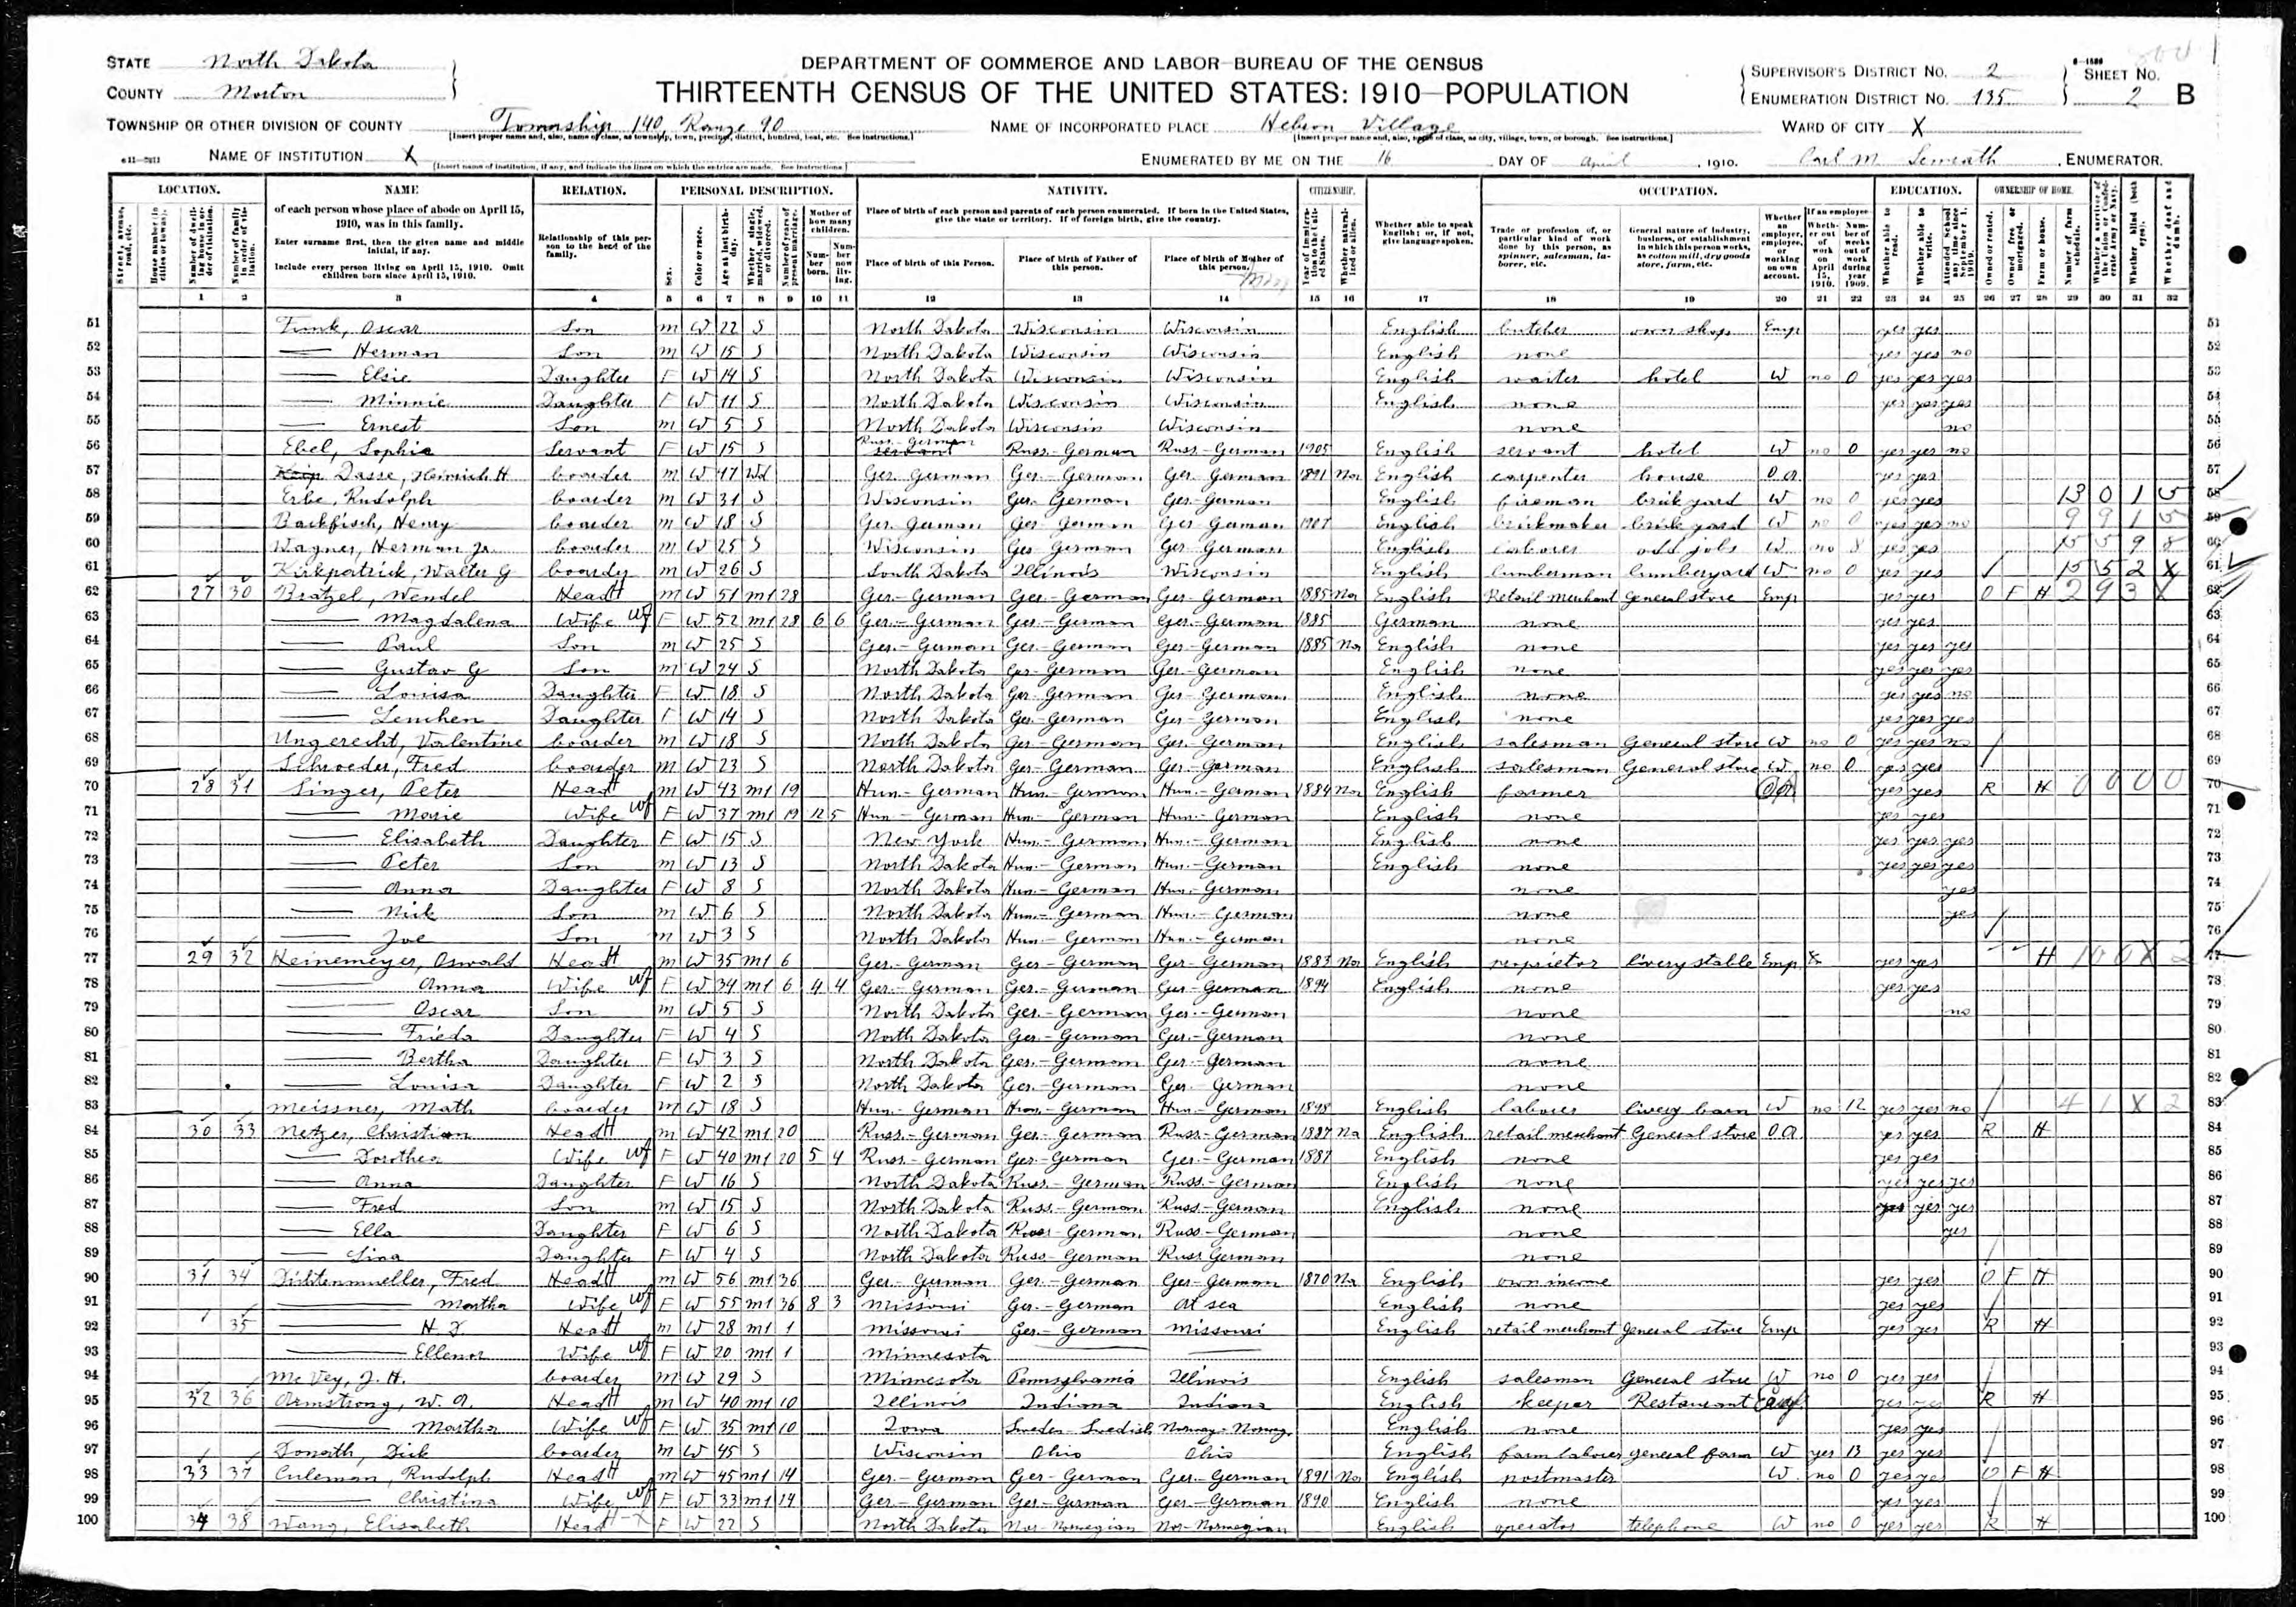 STATE North Dakota
COUNTY Morton
DEPARTMENT OF COMMERCE AND LABOR—BUREAU OF THE CENSUS
THIRTEENTH CENSUS OF THE UNITED STATES: 1910—POPULATION
SUPERVISOR'S DISTRICT No. 2
ENUMERATION DISTRICT No. 135
SHEET No. 2 B
TOWNSHIP OR OTHER DIVISION OF COUNTY Township 140 Range 90
NAME OF INCORPORATED PLACE Hebron Village
WARD OF CITY X
NAME OF INSTITUTION X
ENUMERATED BY ME ON THE 16 DAY OF April, 1910. Carl M. ENUMERATOR.
LOCATION. NAME RELATION. PERSONAL DESCRIPTION. NATIVITY. CITIZENSHIP. OCCUPATION. EDUCATION. OWNERSHIP OF HOME.
of each person whose place of abode on April 15, 1910, was in this family.
Enter surname first, then the given name and middle initial, if any.
Include every person living on April 15, 1910. Omit children born since April 15, 1910.
Relationship of this person to the head of the family.
Place of birth of each person and parents of each person enumerated. If born in the United States, give the state or territory. If of foreign birth, give the country.
Place of birth of this Person. Place of birth of Father of this person. Place of birth of Mother of this person.
Whether able to speak English; or, if not, give language spoken.
1 2 3 4 5 6 7 8 9 10 11 12 13 14 15 16 17 18 19 20 21 22 23 24 25 26 27 28 29 30 31 32
51 Funk, Oscar Son M W 22 S North Dakota Wisconsin Wisconsin English butcher own shop Emp yes yes 51
52 — Herman Son M W 15 S North Dakota Wisconsin Wisconsin English none yes yes no 52
53 — Elsie Daughter F W 14 S North Dakota Wisconsin Wisconsin English waiter hotel W no 0 yes yes yes 53
54 — Minnie Daughter F W 11 S North Dakota Wisconsin Wisconsin English none yes yes yes 54
55 — Ernest Son M W 5 S North Dakota Wisconsin Wisconsin none no 55
56 Ebel, Sophie Servant F W 15 S Russ.-German Russ.-German Russ.-German 1905 English servant hotel W no 0 yes yes no 56
57 Dasse, Heinrich H boarder M W 47 Wd Ger. German Ger.-German Ger. German 1891 Na English carpenter house O A yes yes 57
58 Erbe, Rudolph boarder M W 31 S Wisconsin Ger. German Ger. German English fireman brick yard W no 0 yes yes 13 0 1 5 58
59 Backfisch, Henry boarder M W 18 S Ger. German Ger. German Ger. German 1907 English brickmaker brick yard W no 0 yes yes no 9 9 1 5 59
60 Wagner, Herman Jr. boarder M W 25 S Wisconsin Ger. German Ger. German English laborer odd jobs W no 8 yes yes 15 5 9 8 60
61 Kirkpatrick, Walter G boarder M W 26 S South Dakota Illinois Wisconsin English lumberman lumberyard W no 0 yes yes 15 5 2 X 61
62 27 30 Bratzel, Wendel Head M W 51 M1 28 Ger.-German Ger.-German Ger. German 1885 Na English Retail merchant General store Emp yes yes O F H 2 9 3 X 62
63 — Magdalena Wife F W 52 M1 28 6 6 Ger.-German Ger.-German Ger.-German 1885 German none yes yes 63
64 — Paul Son M W 25 S Ger.-German Ger.-German Ger.-German 1885 Na English none yes yes yes 64
65 — Gustav G Son M W 24 S North Dakota Ger. German Ger.-German English none yes yes yes 65
66 — Louisa Daughter F W 18 S North Dakota Ger. German Ger.-German English none yes yes no 66
67 — Lenchen Daughter F W 14 S North Dakota Ger.-German Ger.-German English none yes yes yes 67
68 Ungerecht, Valentine boarder M W 18 S North Dakota Ger.-German Ger.-German English salesman General store W no 0 yes yes no 68
69 Schroeder, Fred boarder M W 23 S North Dakota Ger.-German Ger.-German English salesman General store W no 0 yes yes 69
70 28 31 Singer, Peter Head M W 43 M1 19 Hun.-German Hun.-German Hun.-German 1884 Na English farmer yes yes R H 0 0 0 0 70
71 — Marie Wife F W 37 M1 19 12 5 Hun-German Hun-German Hun.-German English none yes yes 71
72 — Elisabeth Daughter F W 15 S New York Hun.-German Hun.-German English none yes yes yes 72
73 — Peter Son M W 13 S North Dakota Hun.-German Hun.-German English none yes yes yes 73
74 — Anna Daughter F W 8 S North Dakota Hun.-German Hun.-German none yes 74
75 — Nick Son M W 6 S North Dakota Hun.-German Hun.-German none yes 75
76 — Joe Son M W 3 S North Dakota Hun.-German Hun.-German none 76
77 29 32 Heinemeyer, Oswald Head M W 35 M1 6 Ger.-German Ger-German Ger-German 1883 Na English proprietor livery stable Emp yes yes H 10 0 X 2 77
78 — Anna Wife F W 34 M1 6 4 4 Ger.-German Ger.-German Ger-German 1894 English none yes yes 78
79 — Oscar Son M W 5 S North Dakota Ger.-German Ger.-German none no 79
80 — Frieda Daughter F W 4 S North Dakota Ger.-German Ger.-German none 80
81 — Bertha Daughter F W 3 S North Dakota Ger.-German Ger-German none 81
82 — Louisa Daughter F W 2 S North Dakota Ger.-German Ger.-German none 82
83 Meissner, Math boarder M W 18 S Hun.-German Hun.-German Hun-German 1898 English laborer livery barn W no 12 yes yes no 4 1 X 2 83
84 30 33 Netzer, Christian Head M W 42 M1 20 Russ.-German Ger.-German Russ-German 1887 Na English retail merchant General store O A yes yes R H 84
85 — Dorothea Wife F W 40 M1 20 5 4 Russ.-German Ger-German Ger.-German 1887 English none yes yes 85
86 — Anna Daughter F W 16 S North Dakota Russ.-German Russ.-German English none yes yes yes 86
87 — Fred Son M W 15 S North Dakota Russ.-German Russ.-German English none yes yes yes 87
88 — Ella Daughter F W 6 S North Dakota Russ-German Russ-German none yes 88
89 — Lina Daughter F W 4 S North Dakota Russ-German Russ German none 89
90 31 34 Dichtenmueller, Fred Head M W 56 M1 36 Ger.-German Ger.-German Ger-German 1870 Na English own income yes yes O F H 90
91 — Martha Wife F W 55 M1 36 8 3 Missouri Ger.-German At sea English none yes yes 91
92 35 — H. Head M W 28 M1 1 Missouri Ger.-German Missouri English retail merchant General store Emp yes yes R H 92
93 — Ellenor Wife F W 20 M1 1 Minnesota — — 93
94 McVey, J. H. boarder M W 29 S Minnesota Pennsylvania Illinois English salesman General store W no 0 yes yes 94
95 32 36 Armstrong, W. A. Head M W 40 M1 10 Illinois Indiana Indiana English keeper Restaurant yes yes R H 95
96 — Martha Wife F W 35 M1 10 Iowa Sweden-Swedish Norway-Norweg. English none yes yes 96
97 Donath, Dick boarder M W 45 S Wisconsin Ohio Ohio English farm laborer general farm W yes 13 yes yes 97
98 33 37 Culeman, Rudolph Head M W 45 M1 14 Ger.-German Ger-German Ger.-German 1891 Na English postmaster W no 0 yes yes O F H 98
99 — Christina Wife F W 33 M1 14 Ger-German Ger-German Ger.-German 1890 English none yes yes 99
100 34 38 Wang, Elisabeth Head F W 22 S North Dakota Nor-Norwegian Nor-Norwegian English operator telephone W no 0 yes yes R H 100